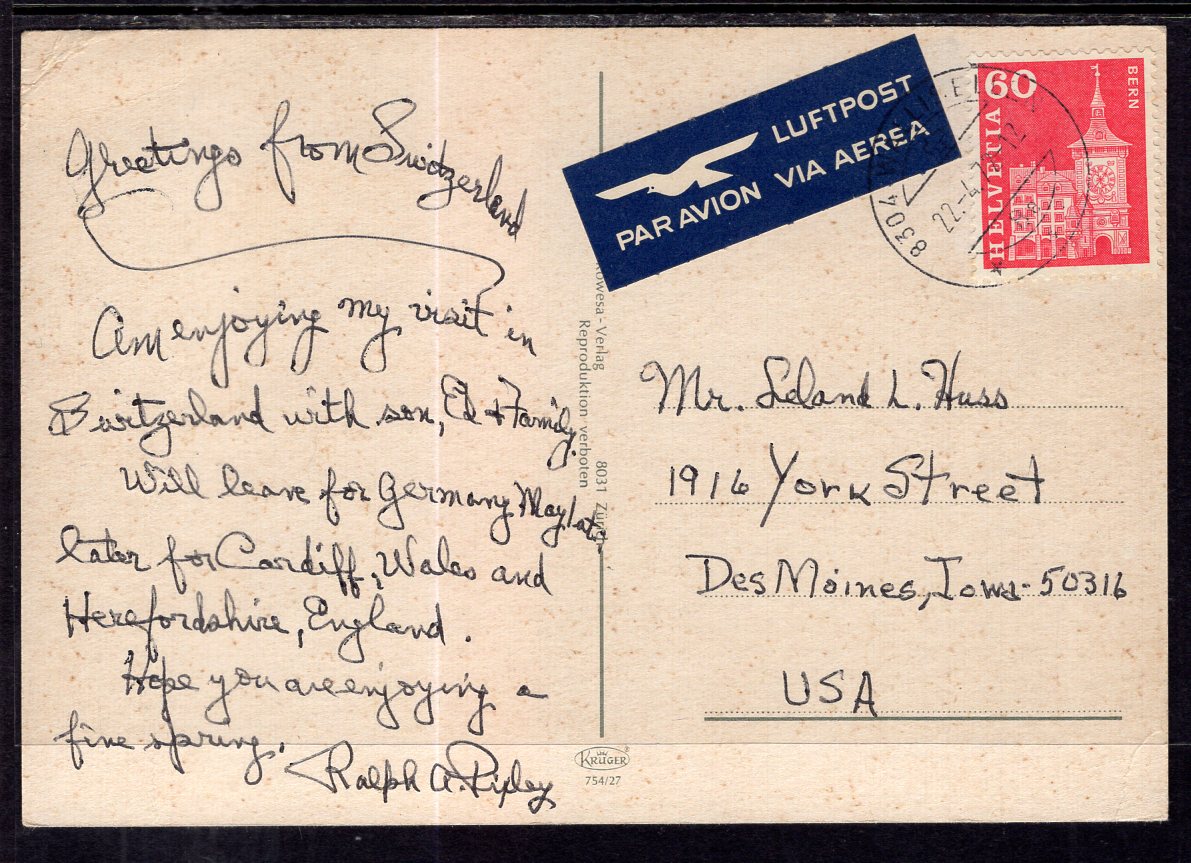 Greetings from Switzerland
Am enjoying my visit in
Switzerland with son, Ed + Family.
Will leave for Germany May 1st,
later for Cardiff, Wales and
Herefordshire, England.
Hope you are enjoying a
fine spring.
Ralph A. Pipley
LUFTPOST
PAR AVION VIA AEREA
60
HELVETIA
BERN
8304
22.-4.7
12
Verlag 8031 Zürich
Reproduktion verboten
KRÜGER
754/27
Mr. Leland L. Huss
1916 York Street
Des Moines, Iowa-50316
USA